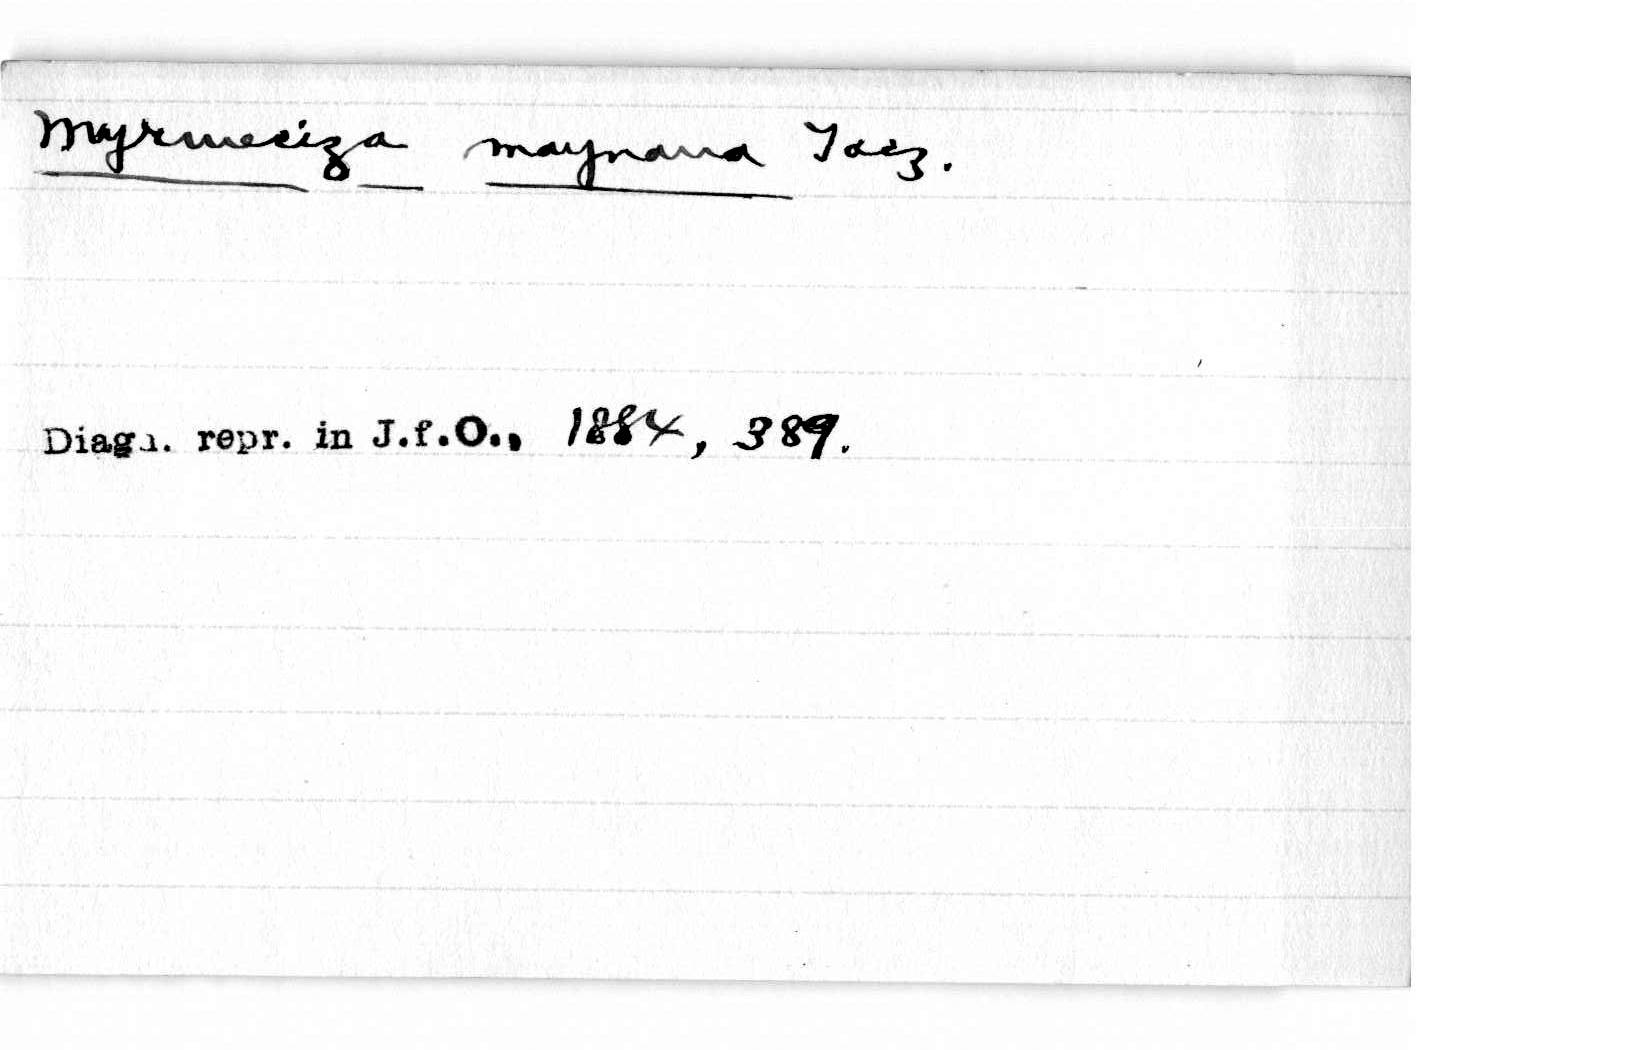 Myrmeciza maynana Tacz.
Diagn. repr. in J.f.O., 1884, 389.